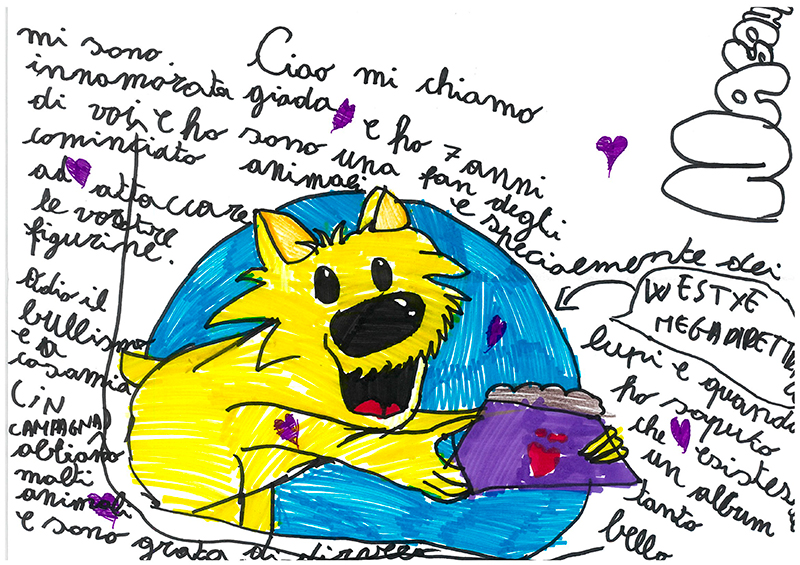 Ciao mi chiamo
giada e ho 7 anni
sono una fan degli
animali e specialmente dei
lupi e quando
ho saputo
che esistess
un album
tanto
bello
mi sono
innamorata
di voi e ho
cominciato
ad attaccare
le vorstre
figurine.
Odio il
bullismo
e a
casamia
(IN
CAMPAGNA)
abbiamo
molti
animali
e sono grata di
WESTXE
MEGADIRETT